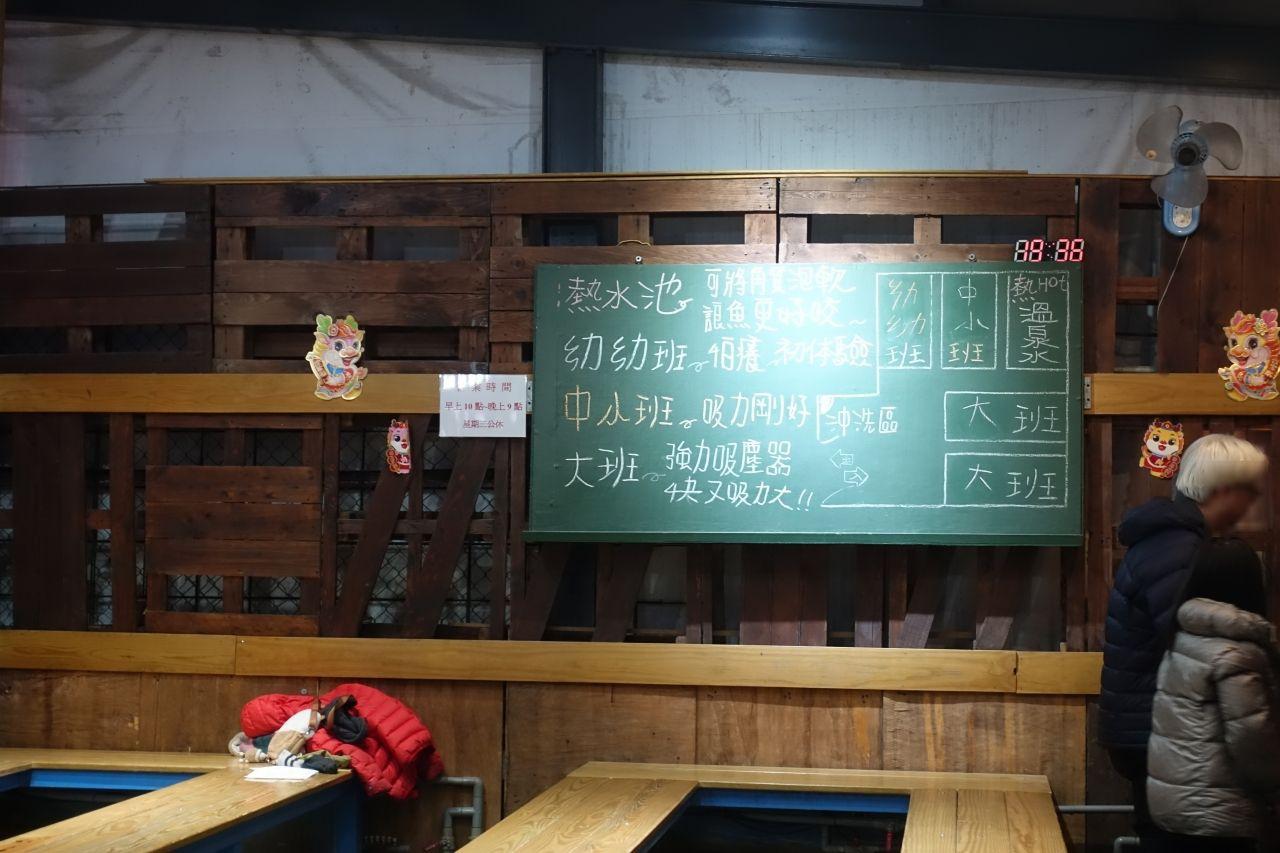 熱水池 可將角質泡軟
讓魚更好咬~
幼幼班~怕癢 初体驗
中小班~吸力剛好
大班~強力吸塵器
快又吸力大!!
幼幼班
中小班
熱Hot
溫泉水
沖洗區
大班
大班
業時間
早上10點~晚上9點
星期三公休